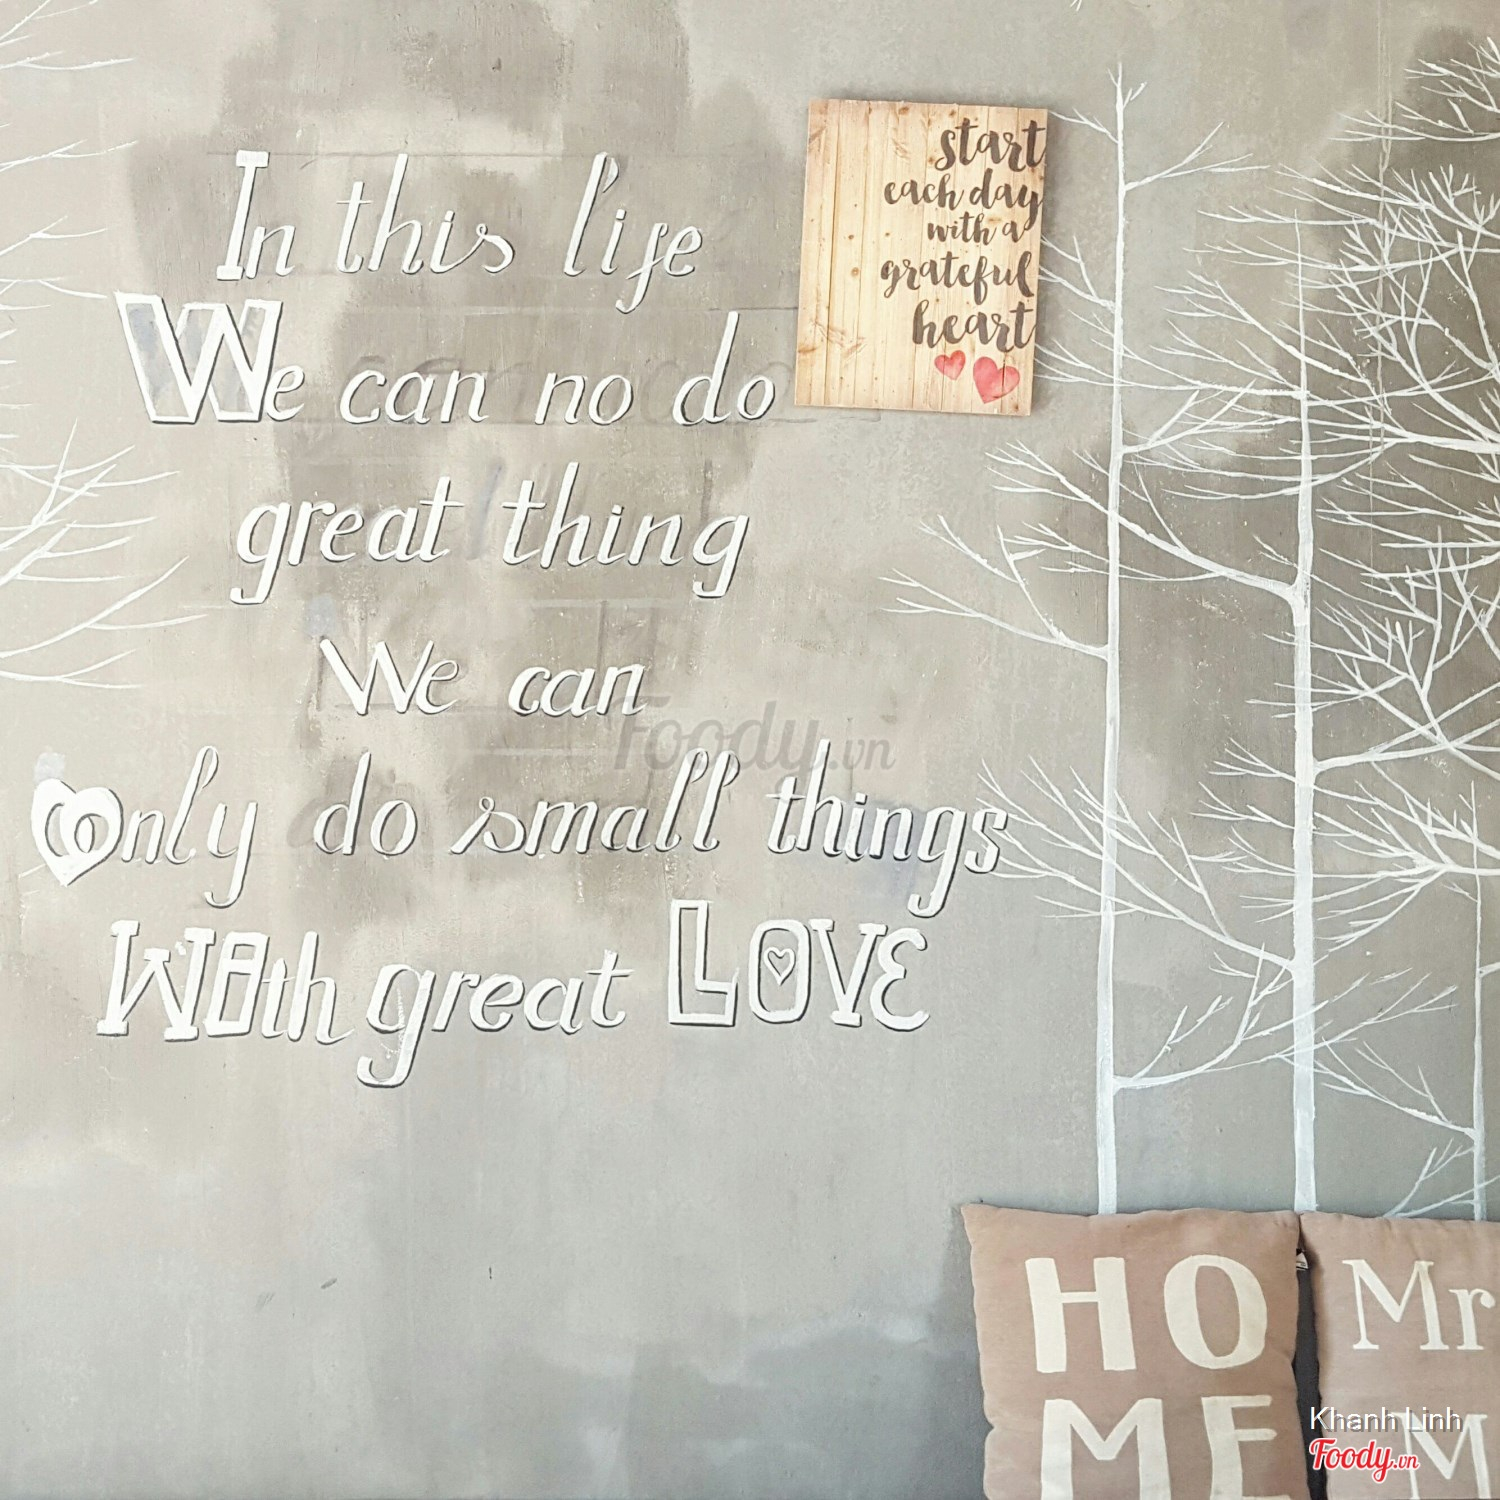 In this life
We can no do
great thing
We can
only do small things
With great LOVE
start
each day
with a
grateful
heart
Foody.vn
HO
ME
Mr
M
Khanh Linh
Foody.vn